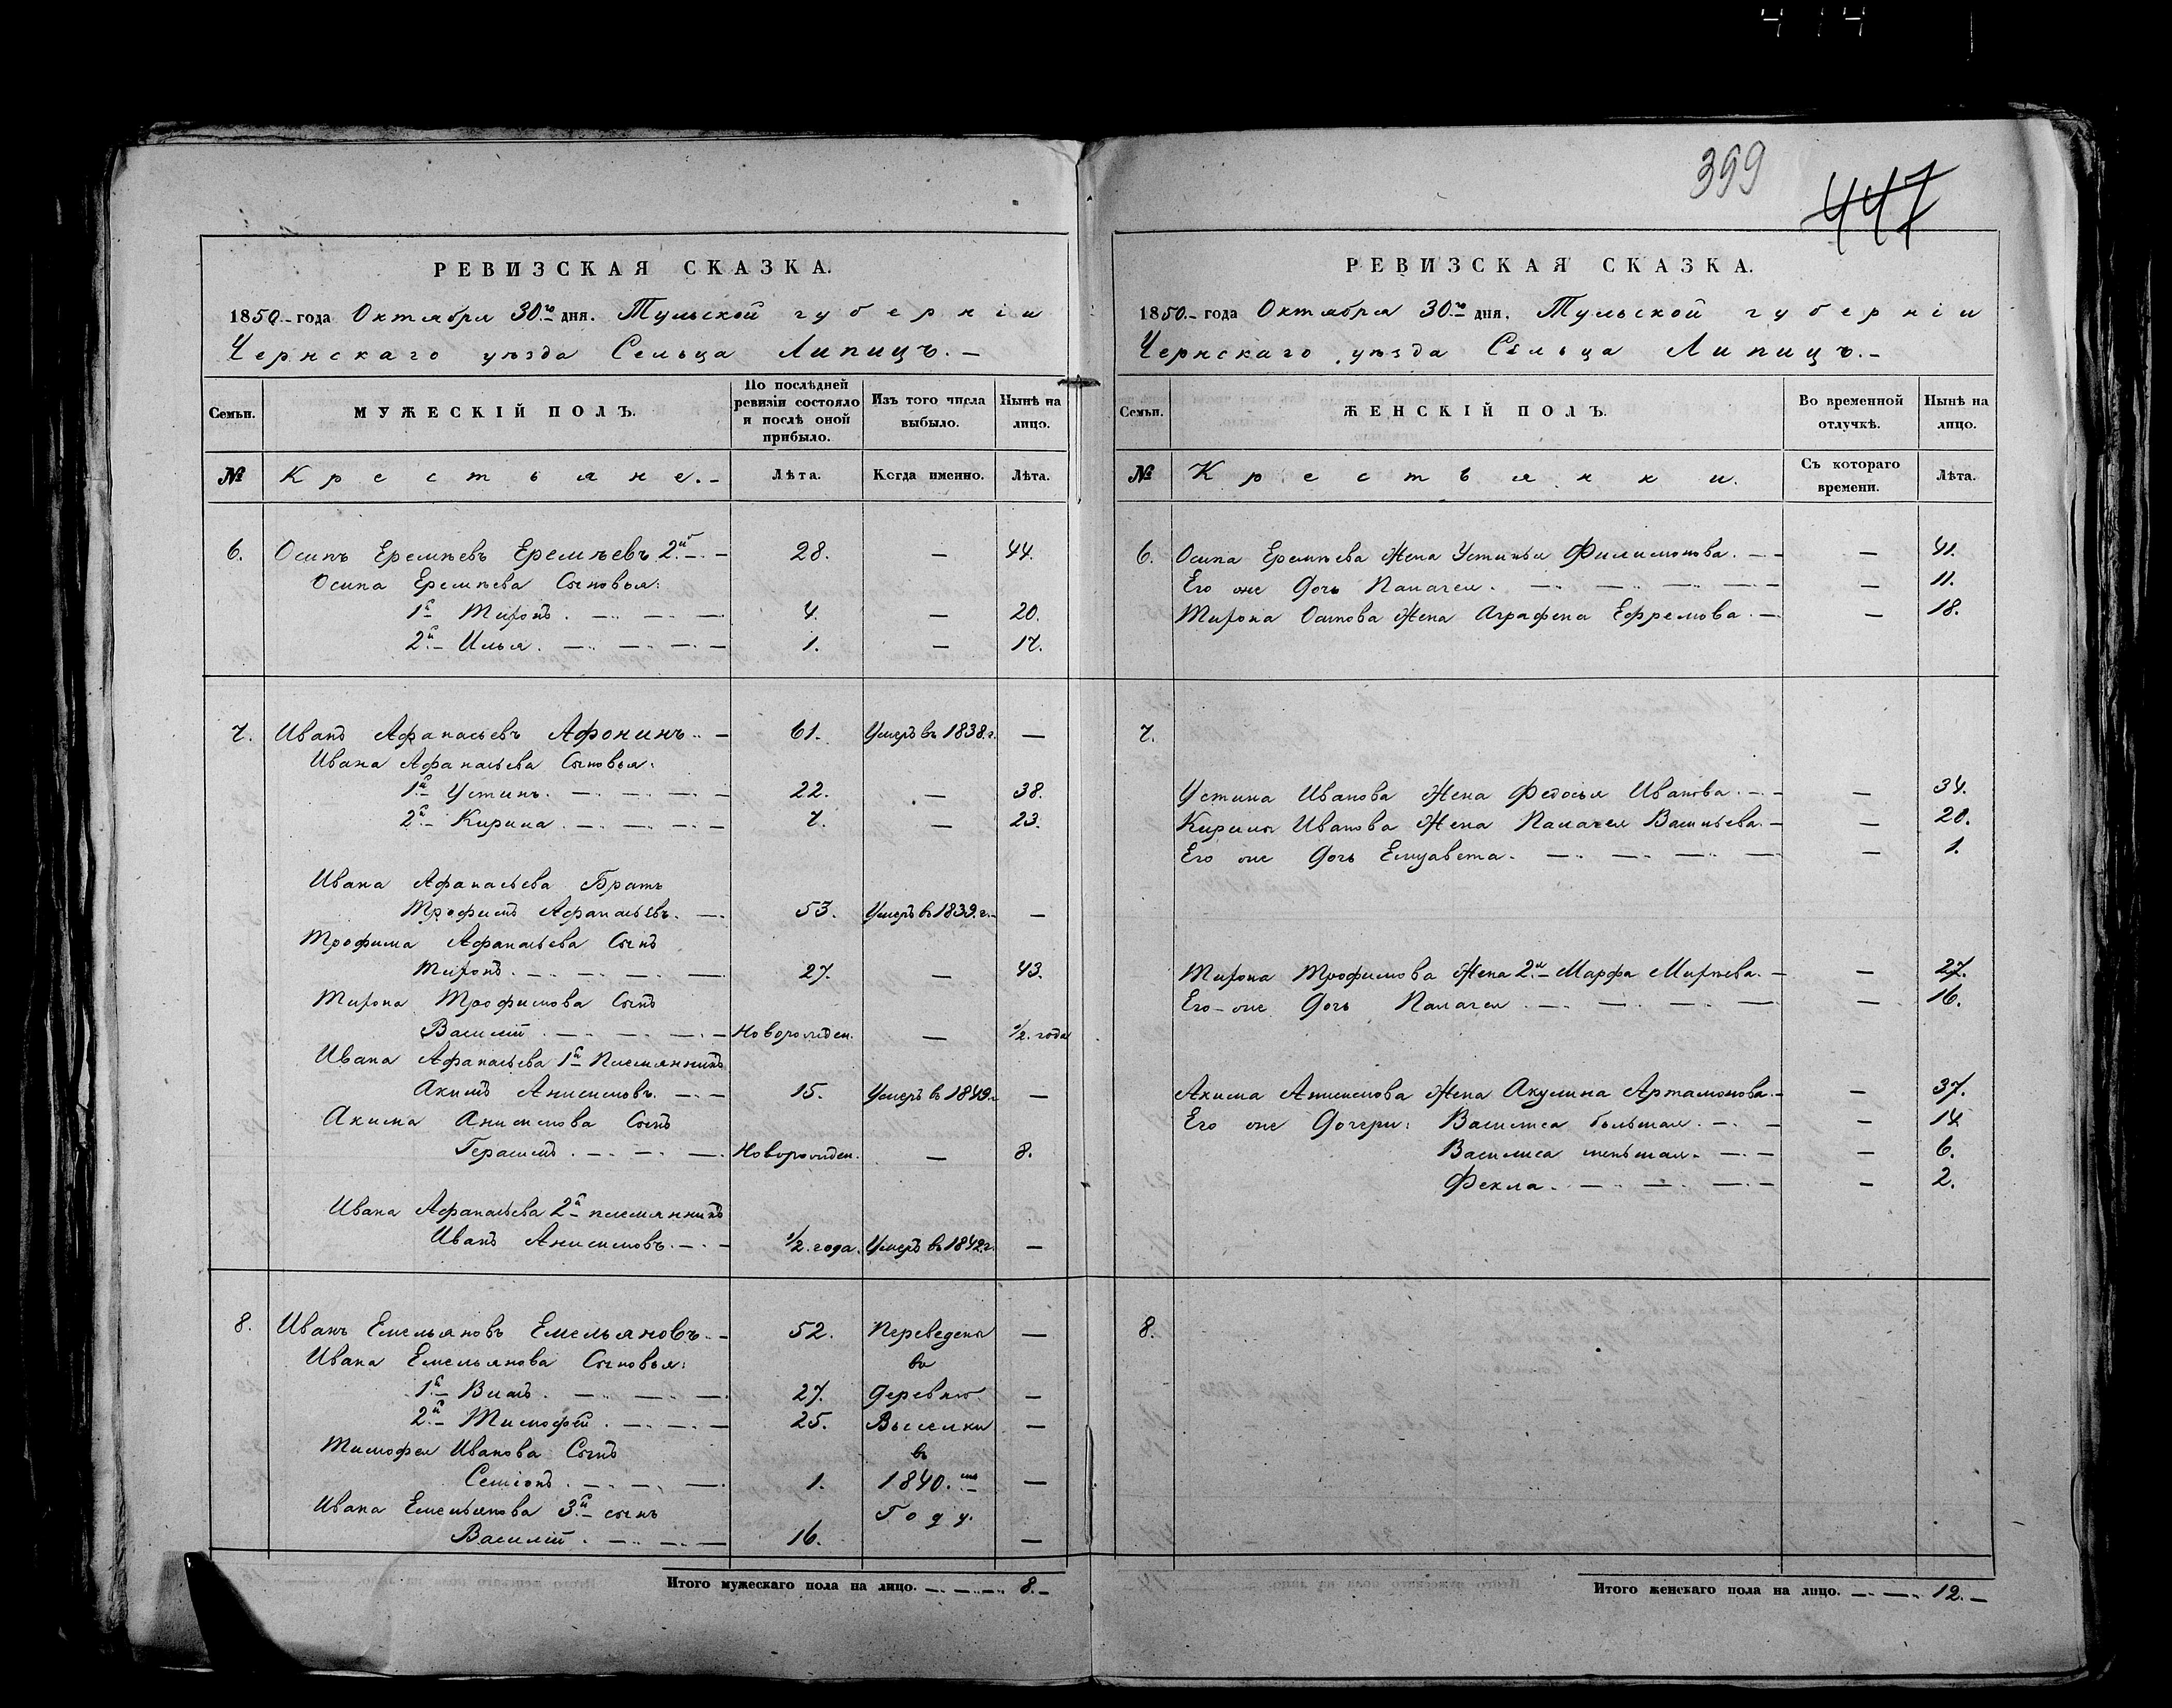 399
447
РЕВИЗСКАЯ СКАЗКА.
1850.- года Октября 30.го дня. Тульской губерніи
Чернскаго уѣзда Сельца Липицъ.-
Семьи.
МУЖЕСКІЙ ПОЛЪ.
По послѣдней ревизіи состояло и послѣ оной прибыло.
Изъ того числа выбыло.
Нынѣ на лицо.
№ Крестьяне.- Лѣта. Когда именно. Лѣта.
6. Осипъ Еремѣевъ Еремѣевъ 2й 28. — 44.
Осипа Еремѣева Сыновья:
1й Миронъ. 4. — 20.
2й Илья. 1. — 17.
7. Иванъ Афанасьевъ Афонинъ 61. Умеръ въ 1838.г. —
Ивана Афанасьева Сыновья:
1й Устинъ. 22. — 38.
2й Кирила. 7. — 23.
Ивана Афанасьева Братъ
Трофимъ Афанасьевъ. 53. Умеръ въ 1839.г. —
Трофима Афанасьева Сынъ
Миронъ. 27. — 43.
Мирона Трофимова Сынъ
Василій. Новорожден. — 1/2. года
Ивана Афанасьева 1й Племянникъ
Акимъ Анисимовъ. 15. Умеръ въ 1849.г. —
Акима Анисимова Сынъ
Герасимъ. Новорожден. — 8.
Ивана Афанасьева 2й племянникъ
Иванъ Анисимовъ. 1/2. года. Умеръ въ 1842.г. —
8. Иванъ Емельяновъ Емельяновъ. 52. Переведены —
Ивана Емельянова Сыновья: во
1й 27. деревню —
2й Тимофей. 25. Выселки —
Тимофея Иванова Сынъ въ
Семіонъ. 1. 1840.мъ —
Ивана Емельянова 3й сынъ Году.
Василій. 16. —
Итого мужескаго пола на лицо. 8.-
РЕВИЗСКАЯ СКАЗКА.
1850.- года Октября 30.го дня. Тульской губерніи
Чернскаго уѣзда Сельца Липицъ.-
Семьи.
ЖЕНСКІЙ ПОЛЪ.
Во временной отлучкѣ.
Нынѣ на лицо.
№ Крестьянки. Съ котораго времени. Лѣта.
6. Осипа Еремѣева Жена Устинья Филимонова. — 41.
Его же Дочь Палагея. — 11.
Мирона Осипова Жена Аграфена Ефремова. — 18.
7.
Устина Иванова Жена Федосья Иванова. — 34.
Кирилы Иванова Жена Палагея Васильева. — 20.
Его же Дочь Елизавета. — 1.
Мирона Трофимова Жена 2я Марфа Мирѣева. — 27.
Его же Дочь Палагея. — 16.
Акима Анисимова Жена Акулина Артамонова. — 37.
Его же Дочери: Василиса большая. — 14
Василиса меньшая. — 6.
Фекла. — 2.
8.
Итого женскаго пола на лицо. 12.-